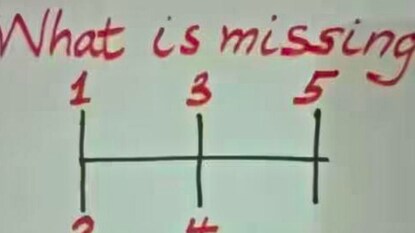 What is missing
1 3 5
4